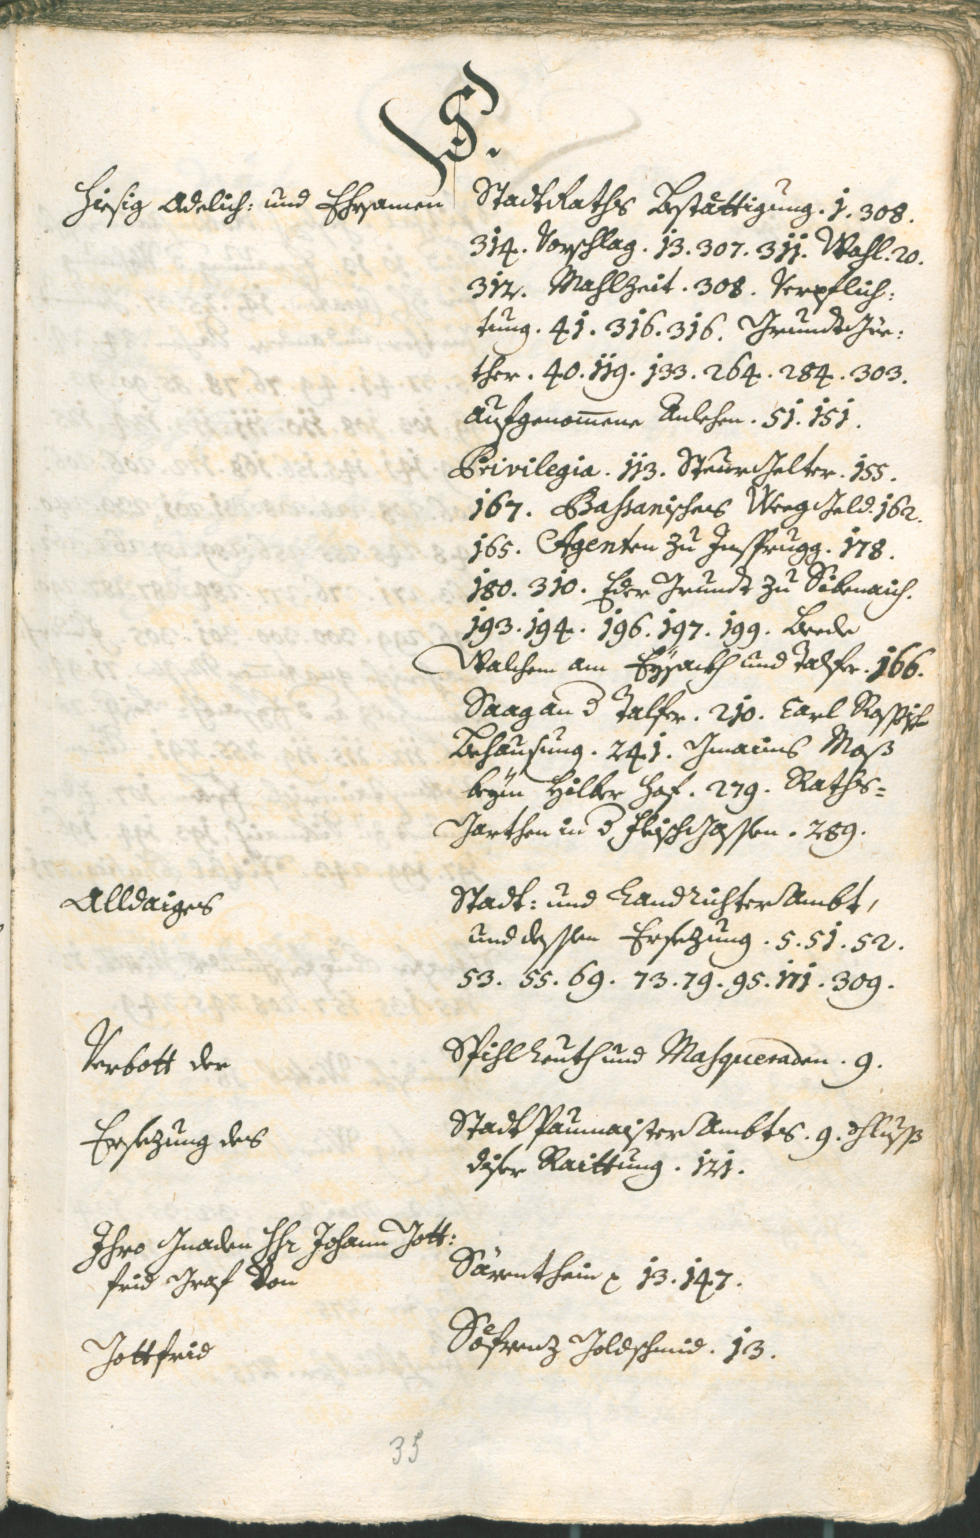 S.
Hiesig Adelich: und Ehrsamen StadtRaths Bestättigung. 1. 308.
314. Vorschlag. 13. 307. 311. Wahl. 20.
312. Mahlzeit. 308. Verpflich:
tung. 41. 316. 316. Grundt Güe:
ther. 40. 119. 133. 264. 284. 303.
aufgenom̅ene Anlehen. 51. 151.
Privilegia. 113. Steur Gelter. 155.
167. Bassanisches Weeg Geld. 162.
165. Agenten zu Insprugg. 178.
180. 310. Eder Grundt zu Sibenaich.
193. 194. 196. 197. 199. Beede
Walchen am Eysackh und Talfer. 166.
Saag an d Talfer. 210. Carl
Behausung. 241. Gmaines Moß
beym Hilber Hof. 279. Raths=
Garthen in d FleischGassen. 289.
Alldaiges Stadt: und LandRichter Ambt,
und dessen Ersezung. 5. 51. 52.
53. 55. 69. 73. 79. 95. 171. 309.
Verbott der Spihl Leuth und Masqueraden. 9.
Ersezung des Stadt Paumaister Ambts. 9. Schluß
diser Raittung. 121.
Ihro Gnaden Johann Gott:
frid Graf Von Särenthein 13. 147.
Gottfrid Goldschmid. 13.
35